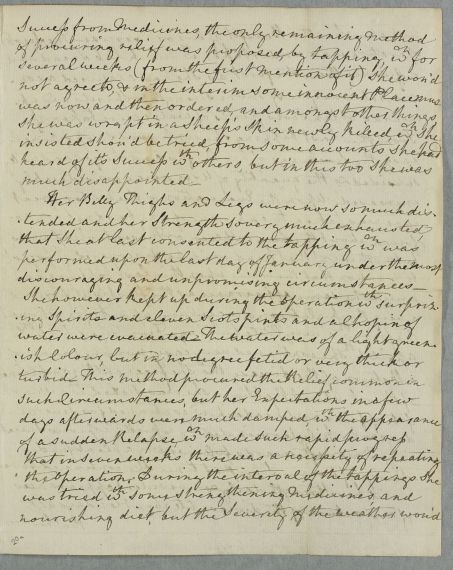 Success from Medicines, the only remaining method
of procuring relief was proposed, by tapping, wch for
several weeks (from the first mention of it) She wou'd
not agree to, & in the interim some innocent Placemus
was now and then ordered, and amongst other things
She was wrapt in a Sheep's Skin newly kiled, wch She
insisted shou'd be tried, from some accounts She had
heard of its Success wth others, but in this too She was
much disappointed —
Her Belly Thighs and Legs were now so much dis-
-tended and her Strength so very much exhausted
that She at last consented to the tapping wch was
performed upon the last day of January under the most
discouraging and unpromising circumstances —
She however kept up during the operation wth surpriz-
-ing Spirits and eleven Scots pints and a chopin of
water were evacuated — The water was of a light green
-ish Colour, but in no degree fetid or very thick or
turbid — This method procured the Relief common in
such Circumstances, but her Expectations in a few
days afterwards were much damped, wth the appearance
of a sudden Relapse wch made such rapid progress
that in seven weeks there was a necessity of repeating
the Operation, During the interval of the tappings She
was tried wth some strengthening Medicines, and
nourishing diet, but the Severity of the weather wou'd